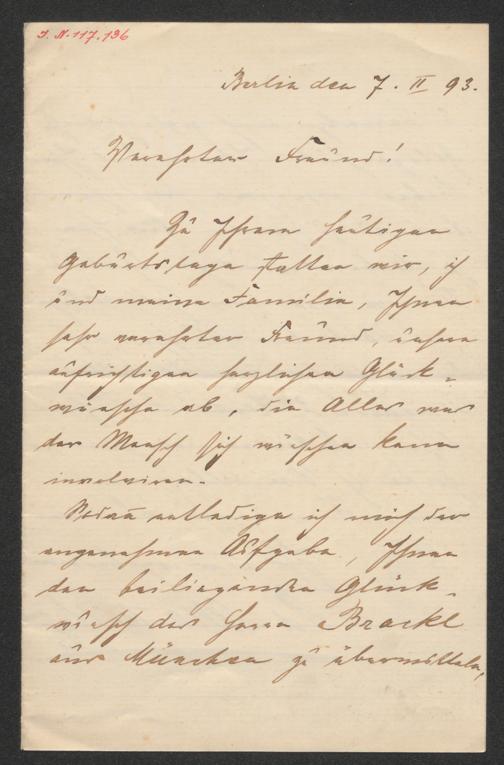 J. N. 117.136
Berlin den 7. II 93.
Verehrter Freund!
Zu Ihrem heutigen
Geburtstage statten wir, ich
und meine Familie, Ihnen
sehr verehrter Freund, unsere
aufrichtigen herzlichen Glück-
wünsche ab, die Alles was
der Mensch sich wünschen kann
involviren.
Sodañ entledige ich mich der
angenehmen Aufgabe, Ihnen
den beiliegenden Glück-
wunsch des Herrn Brackl
aus München zu übermitteln,